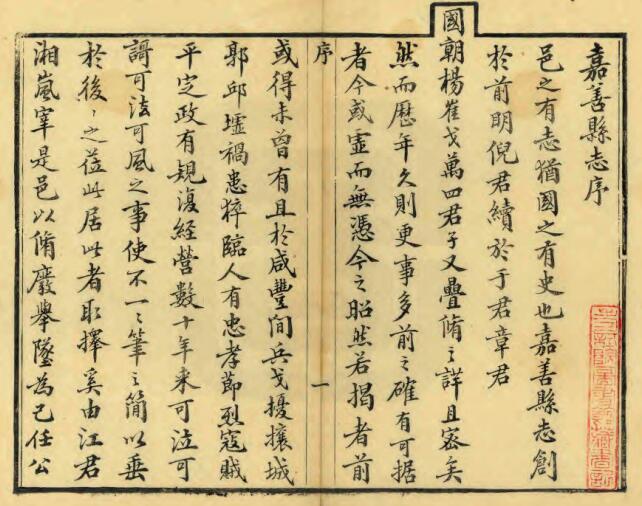 嘉善縣志序
邑之有志猶國之有史也嘉善縣志創
於前明倪君續於于君章君
國朝楊崔戈萬四君子又疊脩之詳且密矣
然而歷年久則更事多前之確有可据
者今或虛而無憑今之昭然若揭者前
序
一
或得未曾有且於咸豐間兵戈擾攘城
郭邱墟禍患猝臨人有忠孝節烈寇賊
平定政有規復經營數十年來可泣可
謌可法可風之事使不一〻筆之簡以垂
於後〻之莅此居此者取擇奚由江君
湘嵐宰是邑以脩廢舉墜為己任公